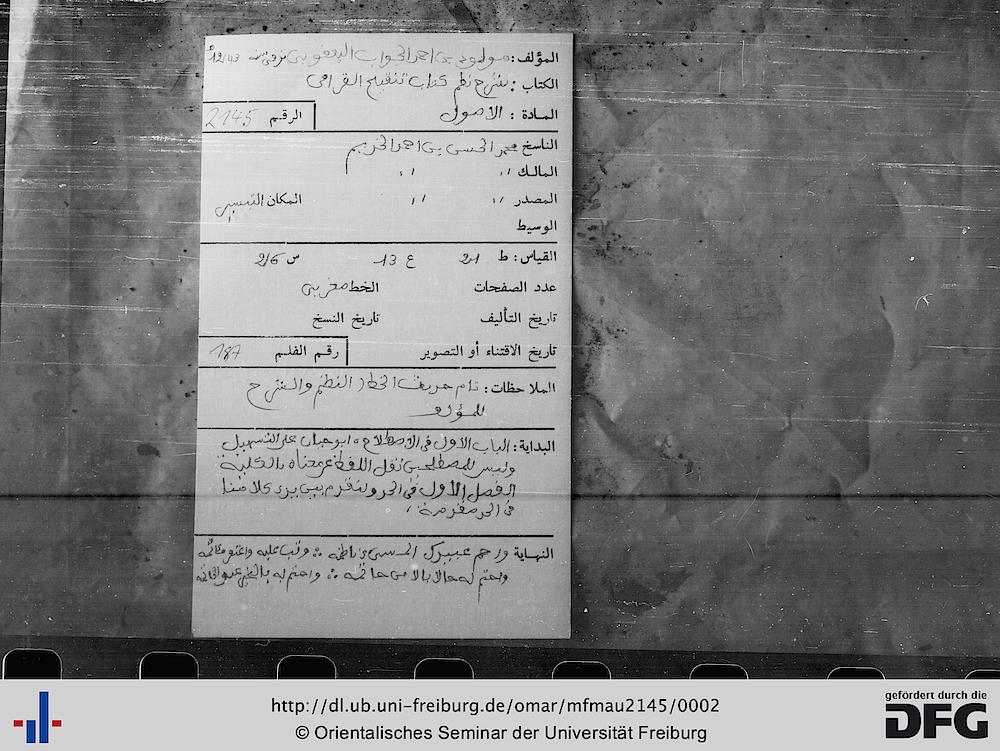 المؤلف: مولود بن احمد الجواد اليعقوبي توفي سنة 1243
الكتاب: شرح نظم كتاب تنقيح القرافي
المادة: الاصول الرقم 2145
الناسخ محمد الحسن بن احمد الخديم
المالك ،، ،،
المصدر ،، ،، المكان التيسير
الوسيط
القياس: ط 21 ع 13 س 26
عدد الصفحات الخط مغربي
تاريخ التأليف تاريخ النسخ
تاريخ الاقتناء أو التصوير رقم الفلم 187
الملاحظات: تام النظم والشرح
للمؤلف
البداية: الباب الاول في الاصطلاح ابو حيان على التسهيل
وليس للمصطلحين نقل اللفظ عن معناه بالكلية
الفصل الاول في الحد ولنقدم بين يدي كلامنا
في الحد مقدمة،
النهاية وارحم عبيدك الحسن وتب عليه
واختم له حالا بالا من خاتمة واختم له
http://dl.ub.uni-freiburg.de/omar/mfmau2145/0002
© Orientalisches Seminar der Universität Freiburg
gefördert durch die
DFG